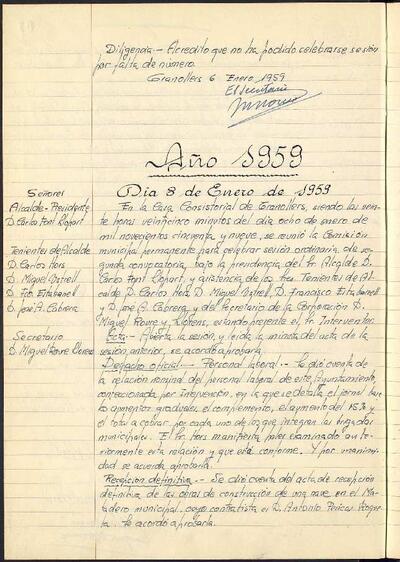 Diligencia.- Acredito que no ha podido celebrarse sesión
por falta de número.
Granollers 6 Enero 1959
El Secretario
Año 1959
Señores
Alcalde-Presidente
D. Carlos Font Llopart
Tenientes de Alcalde
D. Carlos Hors
D. Miguel Distrell
D. Fco Estabanell
D. José A. Cabrera
Secretario
D. Miguel Roure Llorens
Dia 8 de Enero de 1959
En la Casa Consistorial de Granollers, siendo las vein-
te horas veinticinco minutos del dia ocho de enero de
mil novecientos cincuenta y nueve, se reunió la Comisión
municipal permanente para celebrar sesión ordinaria, de se-
gunda convocatoria, bajo la presidencia del Sr. Alcalde D.
Carlos Font Llopart, y asistencia de los tres Tenientes de Al-
calde D. Carlos Hors, D. Miguel Distrell, D. Francisco Estabanell
y D. José A. Cabrera, y del Secretario de la Corporación D.
Miguel Roure y Llorens, estando presente el Sr. Interventor.
Acta.- Abierta la sesión, y leida la minuta del acta de la
sesión anterior, se acordó aprobarla.
Despacho oficial.- Personal laboral.- Se dió cuenta de
la relación nominal del personal laboral de este Ayuntamiento,
confeccionada por Intervención, en la que se detalla el jornal base
los aumentos graduales, el complemento, el aumento del 15% y
el total a cobrar por cada uno de los que integran las brigadas
municipales. El Sr. Hors manifiesta haber examinado ante-
riormente esta relación y que está conforme. Y por unanimi-
dad se acuerda aprobarla.
Recepción definitiva.- Se dió cuenta del acta de recepción
definitiva de las obras de construcción de una nave en el Ma-
tadero municipal, cuyo contratista es D. Antonio Pericas
Se acordó aprobarla.